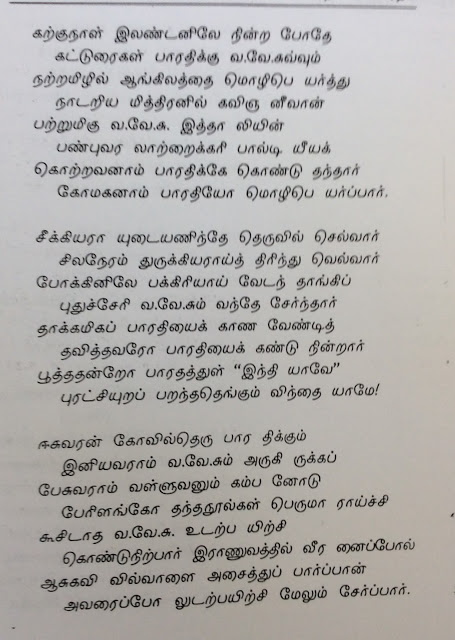 கற்குநாள் இலண்டனிலே நின்ற போதே
கட்டுரைகள் பாரதிக்கு வ.வே.சுவ்வும்
நற்றமிழில் ஆங்கிலத்தை மொழிபெ யர்த்து
நாடறிய மித்திரனில் கவிஞ னீவான்
பற்றுமிகு வ.வே.சு. இத்தா லியின்
பண்புவர லாற்றைக்கரி பால்டி யீயக்
கொற்றவனாம் பாரதிக்கே கொண்டு தந்தார்
கோமகனாம் பாரதியோ மொழிபெ யர்ப்பார்.
சீக்கியரா யுடையணிந்தே தெருவில் செல்வார்
சிலநேரம் துருக்கியராய்த் திரிந்து வெல்வார்
போக்கினிலே பக்கிரியாய் வேடந் தாங்கிப்
புதுச்சேரி வ.வே.சும் வந்தே சேர்ந்தார்
தாக்கமிகப் பாரதியைக் காண வேண்டித்
தவித்தவரோ பாரதியைக் கண்டு நின்றார்
பூத்ததன்றோ பாரதத்துள் “இந்தி யாவே”
புரட்சியுறப் பறந்ததெங்கும் விந்தை யாமே!
ஈசுவரன் கோவில்தெரு பார திக்கும்
இனியவராம் வ.வே.சும் அருகி ருக்கப்
பேசுவராம் வள்ளுவனும் கம்ப னோடு
பேரிளங்கோ தந்தநூல்கள் பெருமா ராய்ச்சி
கூசிடாத வ.வே.சு. உடற்ப யிற்சி
கொண்டுநிற்பார் இராணுவத்தில் வீர னைப்போல்
ஆசுகவி வில்வாளை அசைத்துப் பார்ப்பான்
அவரைப்போ லுடற்பயிற்சி மேலும் சேர்ப்பார்.